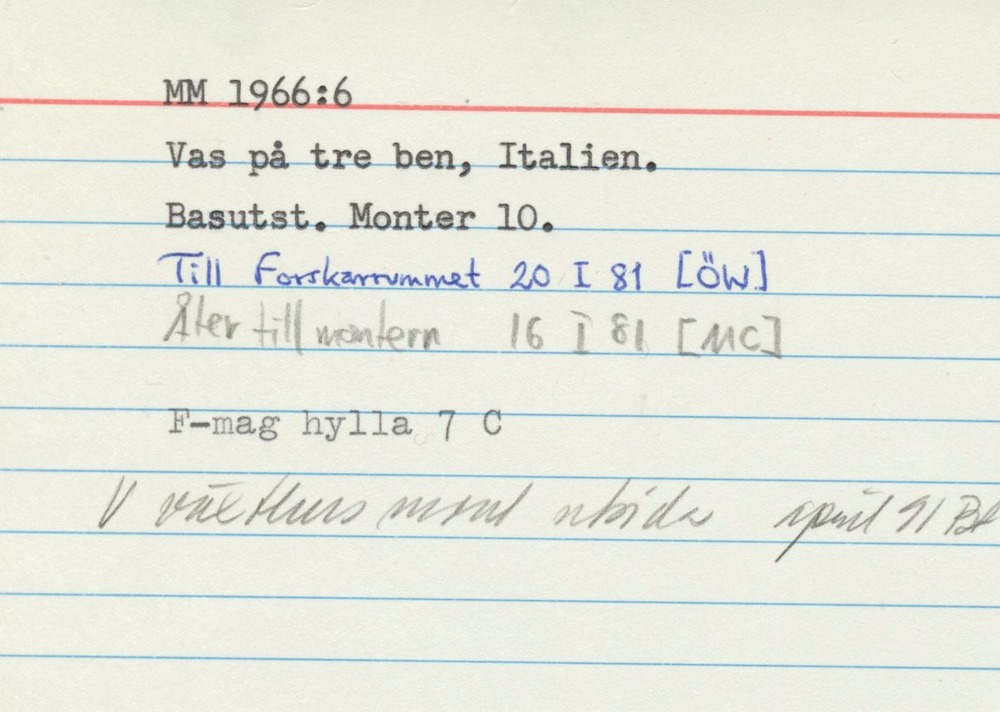 MM 1966:6
Vas på tre ben, Italien.
Basutst. Monter 10.
Till Forskarrummet 20 I 81 [ÖW]
Åter till montern 16 I 81 [MC]
F-mag hylla 7 C
V växthus april 91